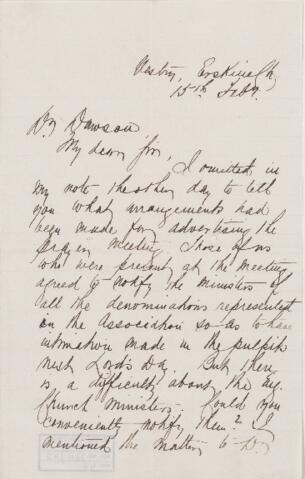 Vestry, Erskine Ch,
15th Feby.
Dr Dawson
My dear Sir,
I omitted in
my note the other day to tell
you what arrangements had
been made for advertising the
prayer meeting. Those of us
who were present at the meeting
agreed to notify the ministers of
all the denominations represented
in the Association so as to have
intimation made in the pulpits
next Lord's Day. But there
is a difficulty about the
Church Ministers. Could you
conveniently notify them? I
mentioned the matter to Dr